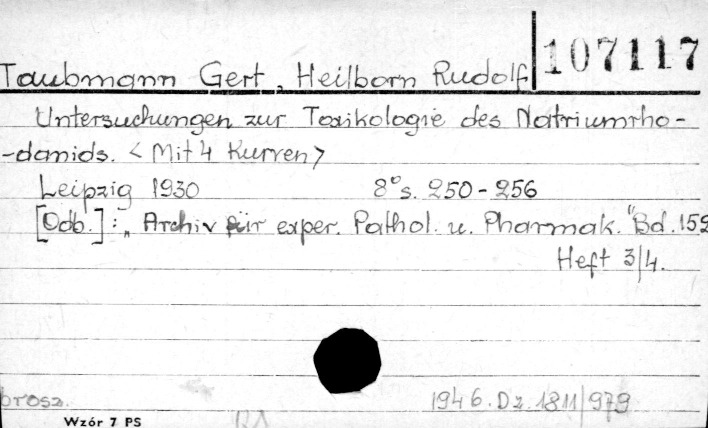 107117
Taubmann Gert, Heilborn Rudolf
Untersuchungen zur Toxikologie des Natriumrho-
-danids. <Mit 4 Kurven>
Leipzig 1930 8° s. 250-256
[Odb.]: „Archiv für exper. Pathol. u. Pharmak." Bd. 152
Heft 3/4.
brosz. 1946. Dz. 1811/979
Wzór 7 PS